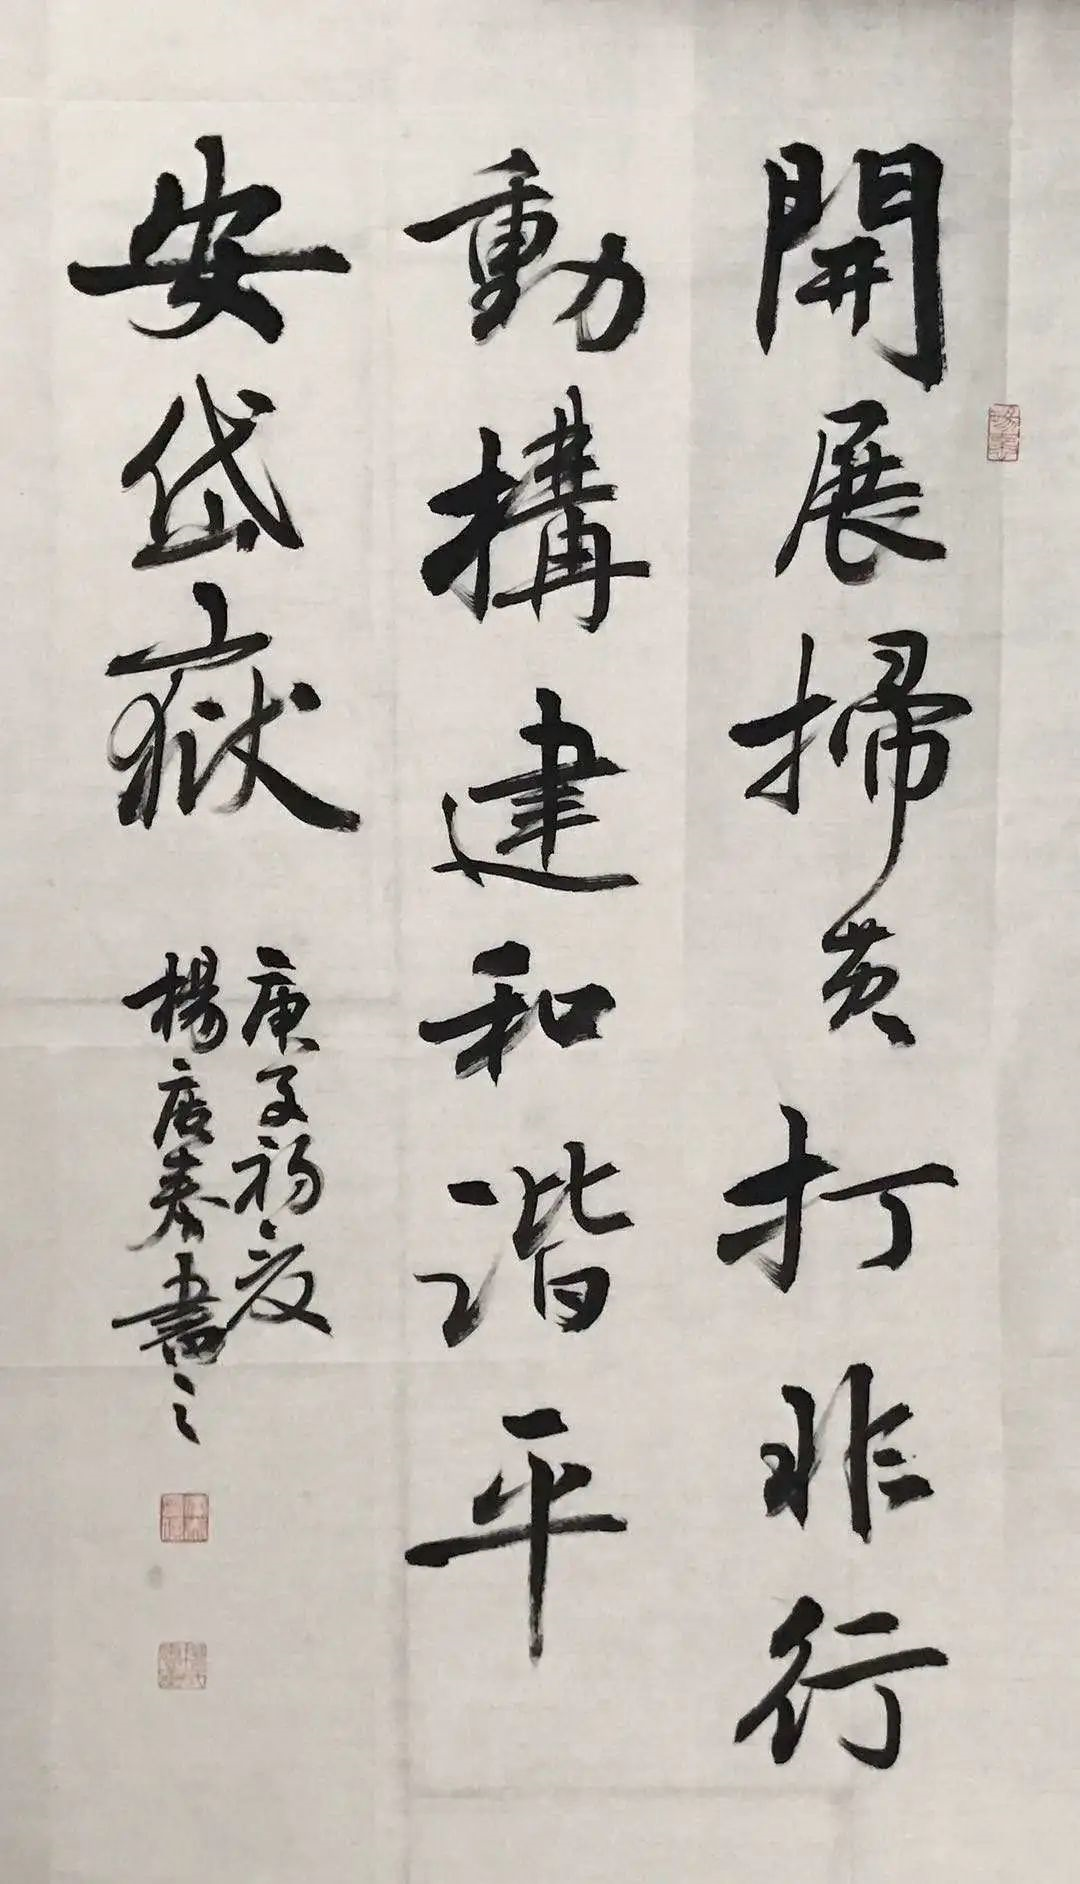 開展掃黃打非行
動搆建和谐平
安岱嶽
庚子初夏
楊店春書之